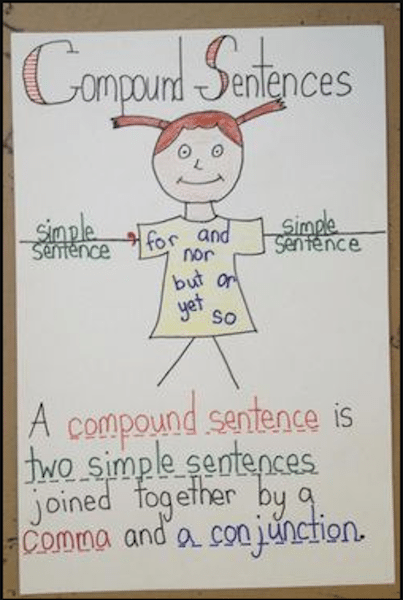 Compound Sentences
simple
sentence
,
for and
nor
but or
yet
so
simple
sentence
A compound sentence is
two simple sentences
joined together by a
comma and a conjunction.